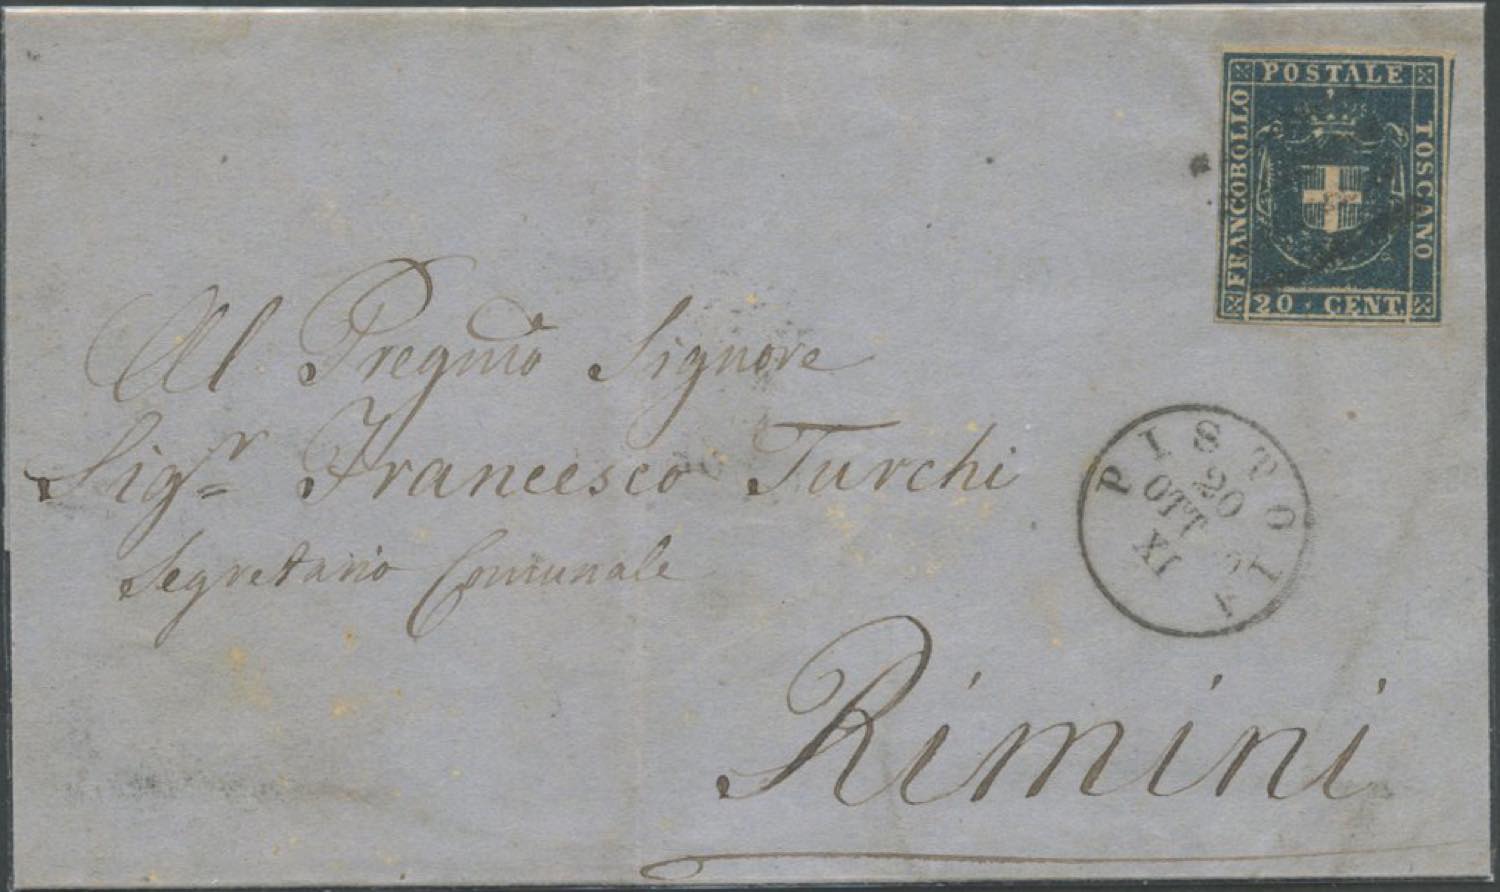 POSTALE
FRANCOBOLLO
TOSCANO
20 · CENT.
Al Pregmo Signore
Sigr Francesco Turchi
Segretario Comunale
Rimini
PISTOIA
20
OTT
IX